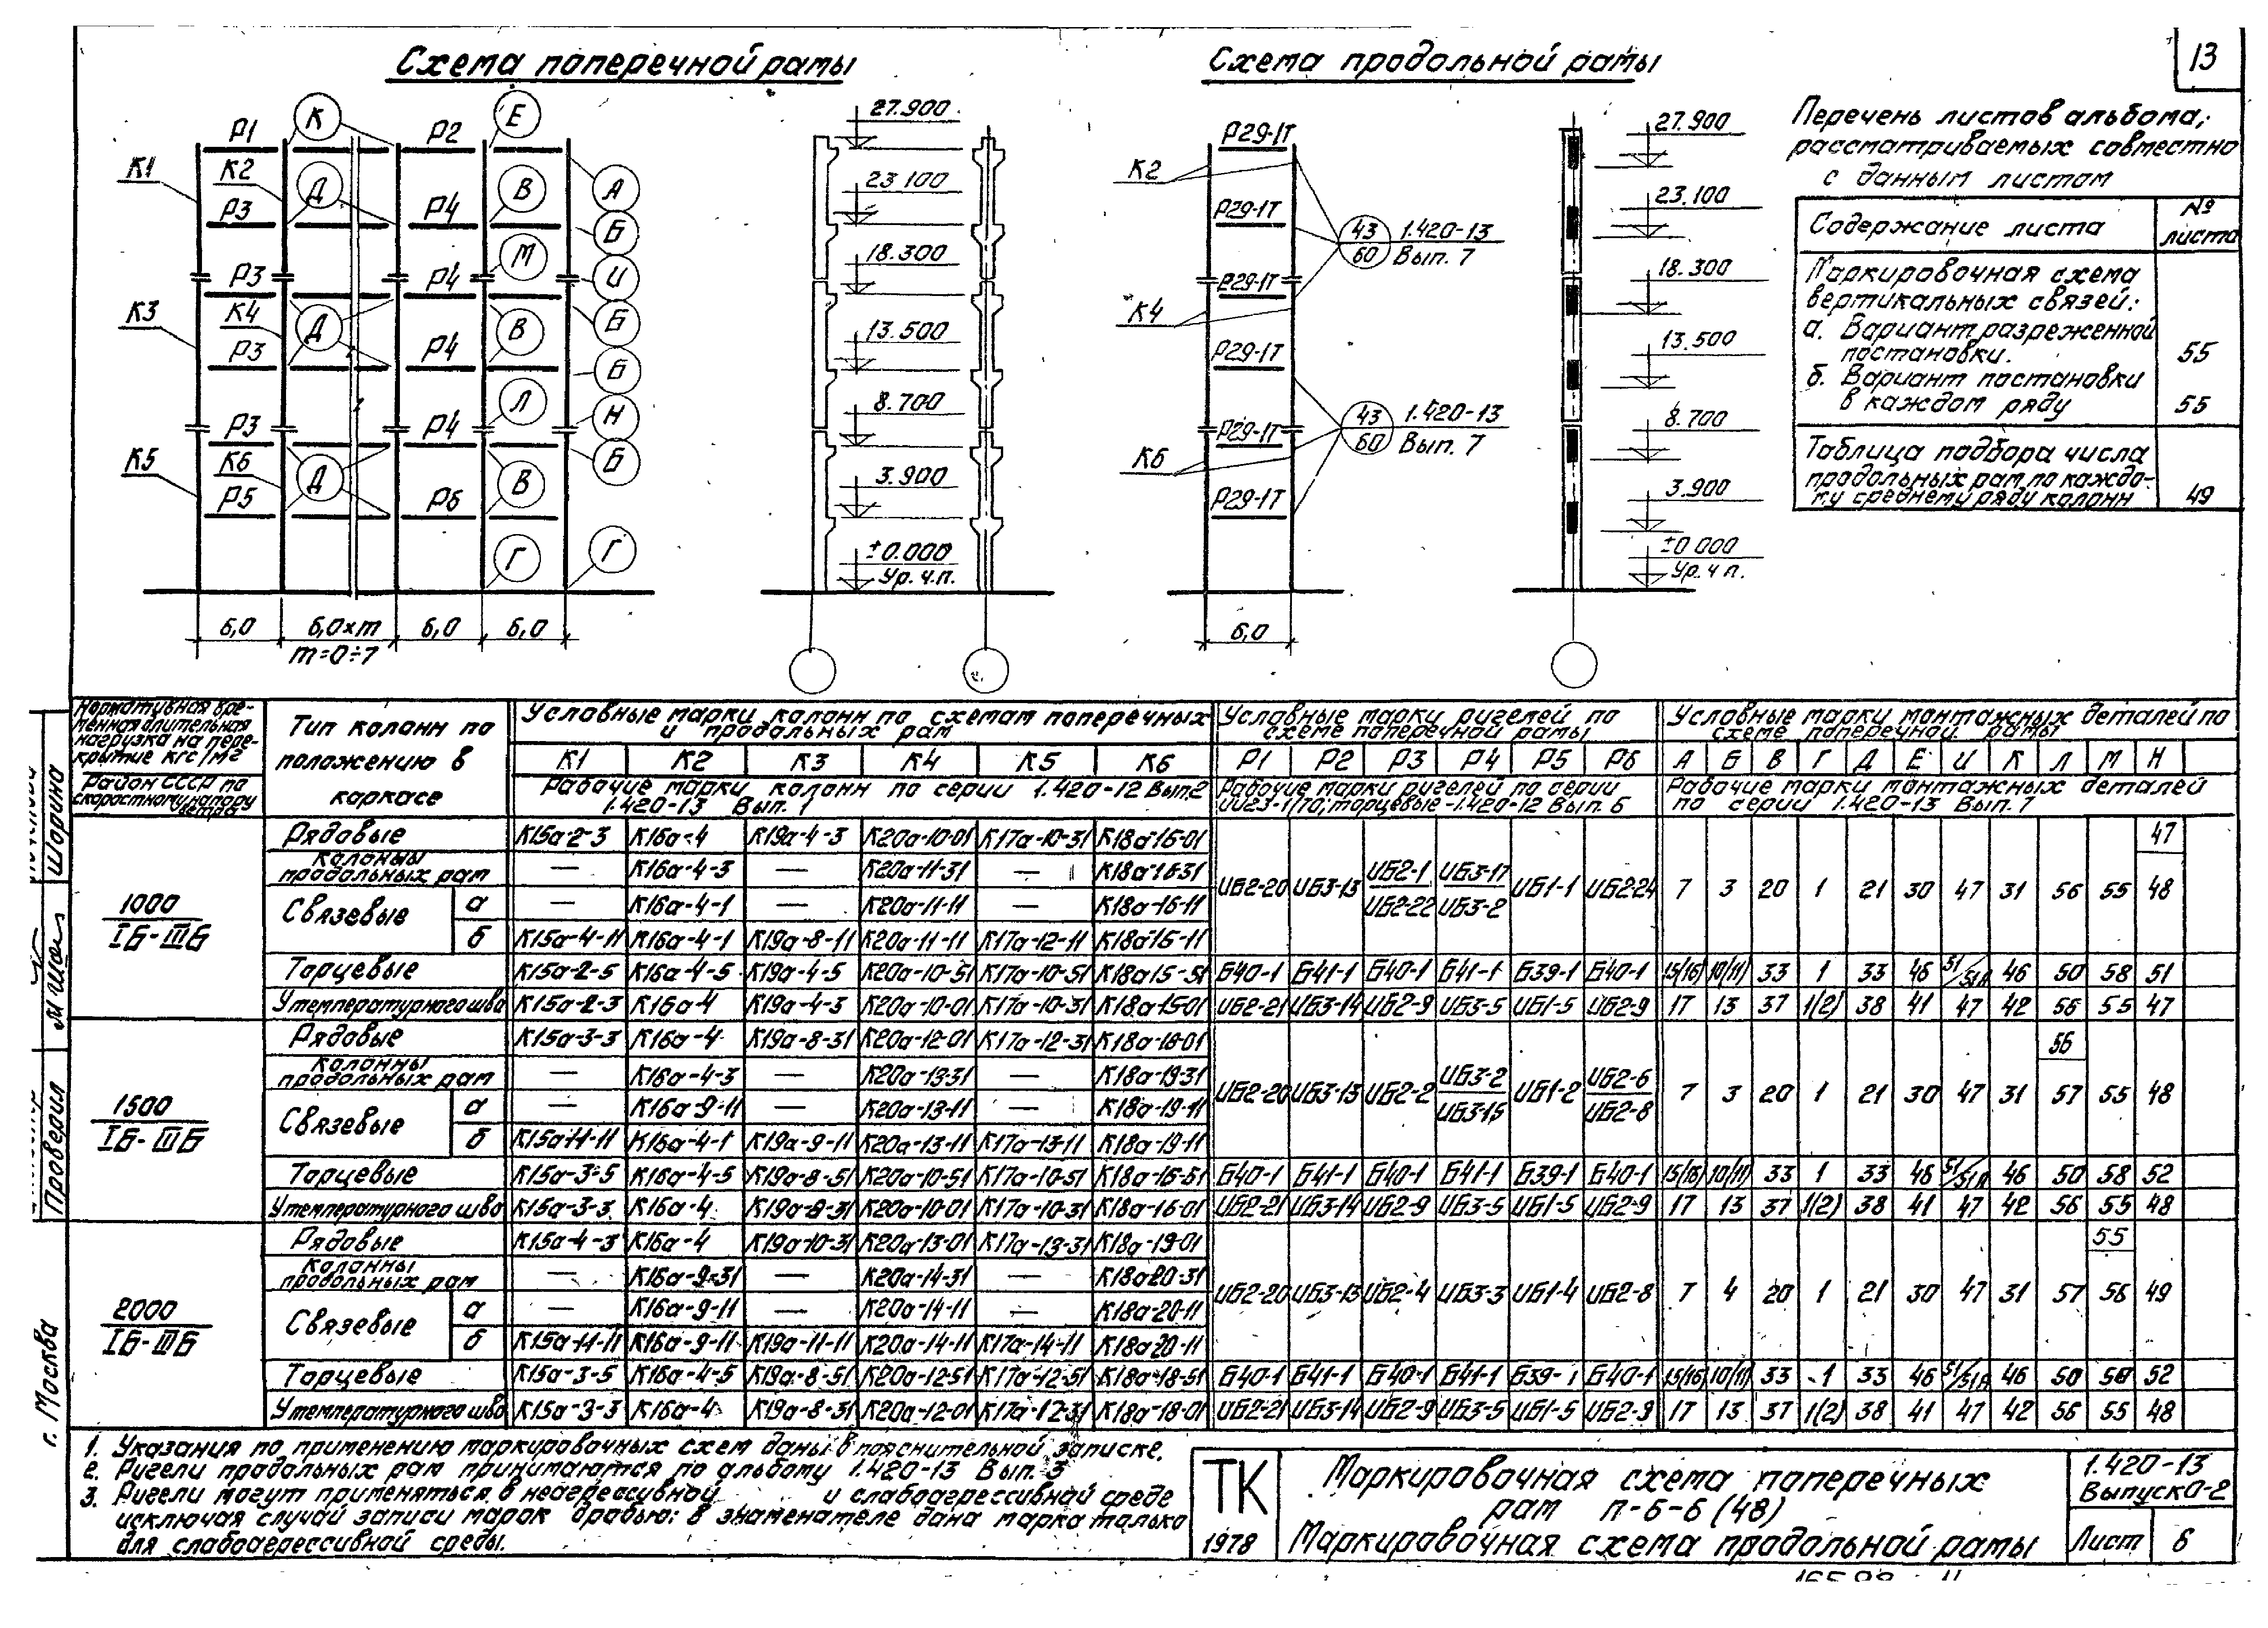 13
Схема поперечной рамы
Схема продольной рамы
Р1 К Р2 Е
К1 К2 Д В А
Р3 Р4 Б
М
Р3 Р4 И
К3 К4 Д В Б
Р3 Р4 Б
Л
Р3 Р4 Н
К5 К6 Д В Б
Р5 Р6
Г Г
6,0 6,0×m 6,0 6,0
m=0÷7
27.900
23.100
18.300
13.500
8.700
3.900
±0.000
Ур. ч.п.
Р29-1Т
К2
Р29-1Т
43 1.420-13
60 Вып. 7
Р29-1Т
К4
Р29-1Т
43 1.420-13
60 Вып. 7
Р29-1Т
К6
Р29-1Т
6,0
27.900
23.100
18.300
13.500
8.700
3.900
±0.000
Ур. ч п.
Перечень листов альбома,
рассматриваемых совместно
с данным листом
Содержание листа № листа
Маркировочная схема
вертикальных связей:
а. Вариант разреженной
постановки. 55
б. Вариант постановки
в каждом ряду 55
Таблица подбора числа
продольных рам по каждо-
му среднему ряду колонн 49
Нормативная вре-
менная длительная
нагрузка на пере-
крытие кгс/м2
Район СССР по
скоростному напору
ветра
Тип колонн по
положению в
каркасе
Условные марки колонн по схемам поперечных
и продольных рам
К1 К2 К3 К4 К5 К6
Рабочие марки колонн по серии 1.420-12 Вып.2
1.420-13 Вып. 1
Условные марки ригелей по
схеме поперечной рамы
Р1 Р2 Р3 Р4 Р5 Р6
Рабочие марки ригелей по серии
ИИ23-1/70; торцевые-1.420-12 Вып. 6
Условные марки монтажных деталей по
схеме поперечной рамы
А Б В Г Д Е И К Л М Н
Рабочие марки монтажных деталей
по серии 1.420-13 Вып. 7
1000
IБ-IIIБ
Рядовые К15а-2-3 К16а-4 К19а-4-3 К20а-10-01 К17а-10-31 К18а-16-01
Колонны
продольных рам — К16а-4-3 — К20а-11-31 — К18а-16-31
Связевые а — К16а-4-1 — К20а-11-11 — К18а-16-11
б К15а-4-11 К16а-4-1 К19а-8-11 К20а-11-11 К17а-12-11 К18а-16-11
ИБ2-20 ИБ3-13 ИБ2-1 ИБ3-17 ИБ1-1 ИБ2-24 7 3 20 1 21 30 47 31 56 55 47
ИБ2-22 ИБ3-2 48
Торцевые К15а-2-5 К16а-4-5 К19а-4-5 К20а-10-51 К17а-10-51 К18а15-51 Б40-1 Б41-1 Б40-1 Б41-1 Б39-1 Б40-1 15(16) 10(11) 33 1 33 46 51/51А 46 50 58 51
У температурного шва К15а-2-3 К16а-4 К19а-4-3 К20а-10-01 К17а-10-31 К18а-15-01 ИБ2-21 ИБ3-14 ИБ2-9 ИБ3-5 ИБ1-5 ИБ2-9 17 13 37 1(2) 38 41 47 42 56 55 47
1500
IБ-IIIБ
Рядовые К15а-3-3 К16а-4 К19а-8-31 К20а-12-01 К17а-12-31 К18а-18-01
Колонны
продольных рам — К16а-4-3 — К20а-13-31 — К18а-19-31
Связевые а — К16а-9-11 — К20а-13-11 — К18а-19-11
б К15а-11-11 К16а-4-1 К19а-9-11 К20а-13-11 К17а-13-11 К18а-19-11
ИБ2-20 ИБ3-13 ИБ2-2 ИБ3-2 ИБ1-2 ИБ2-6 7 3 20 1 21 30 47 31 56 55 48
ИБ3-15 ИБ2-8 57
Торцевые К15а-3-5 К16а-4-5 К19а-8-51 К20а-10-51 К17а-10-51 К18а-16-51 Б40-1 Б41-1 Б40-1 Б41-1 Б39-1 Б40-1 15(16) 10(11) 33 1 33 46 51/51А 46 50 58 52
У температурного шва К15а-3-3 К16а-4 К19а-8-31 К20а-10-01 К17а-10-31 К18а-16-01 ИБ2-21 ИБ3-14 ИБ2-9 ИБ3-5 ИБ1-5 ИБ2-9 17 13 37 1(2) 38 41 47 42 56 55 48
2000
IБ-IIIБ
Рядовые К15а-4-3 К16а-4 К19а-10-31 К20а-13-01 К17а-13-31 К18а-19-01
Колонны
продольных рам — К16а-9-31 — К20а-14-31 — К18а20-31
Связевые а — К16а-9-11 — К20а-14-11 — К18а-20-11
б К15а-11-11 К16а-9-11 К19а-11-11 К20а-14-11 К17а-14-11 К18а20-11
ИБ2-20 ИБ3-13 ИБ2-4 ИБ3-3 ИБ1-4 ИБ2-8 7 4 20 1 21 30 47 31 57 55 49
56
Торцевые К15а-3-5 К16а-4-5 К19а-8-51 К20а-12-51 К17а-12-51 К18а-18-51 Б40-1 Б41-1 Б40-1 Б41-1 Б39-1 Б40-1 15(16) 10(11) 33 1 33 46 51/51А 46 50 58 52
У температурного шва К15а-3-3 К16а-4 К19а-8-31 К20а-12-01 К17а-12-31 К18а-18-01 ИБ2-21 ИБ3-14 ИБ2-9 ИБ3-5 ИБ1-5 ИБ2-9 17 13 37 1(2) 38 41 47 42 56 55 48
1. Указания по применению маркировочных схем даны в пояснительной записке.
2. Ригели продольных рам принимаются по альбому 1.420-13 Вып. 3
3. Ригели могут применяться в неагрессивной и слабоагрессивной среде
исключая случай записи марок дробью: в знаменателе дана марка только
для слабоагрессивной среды.
ТК
1978
Маркировочная схема поперечных
рам П-6-6 (48)
Маркировочная схема продольной рамы
1.420-13
Выпуск 0-2
Лист 6
Шорина
Проверил
г. Москва